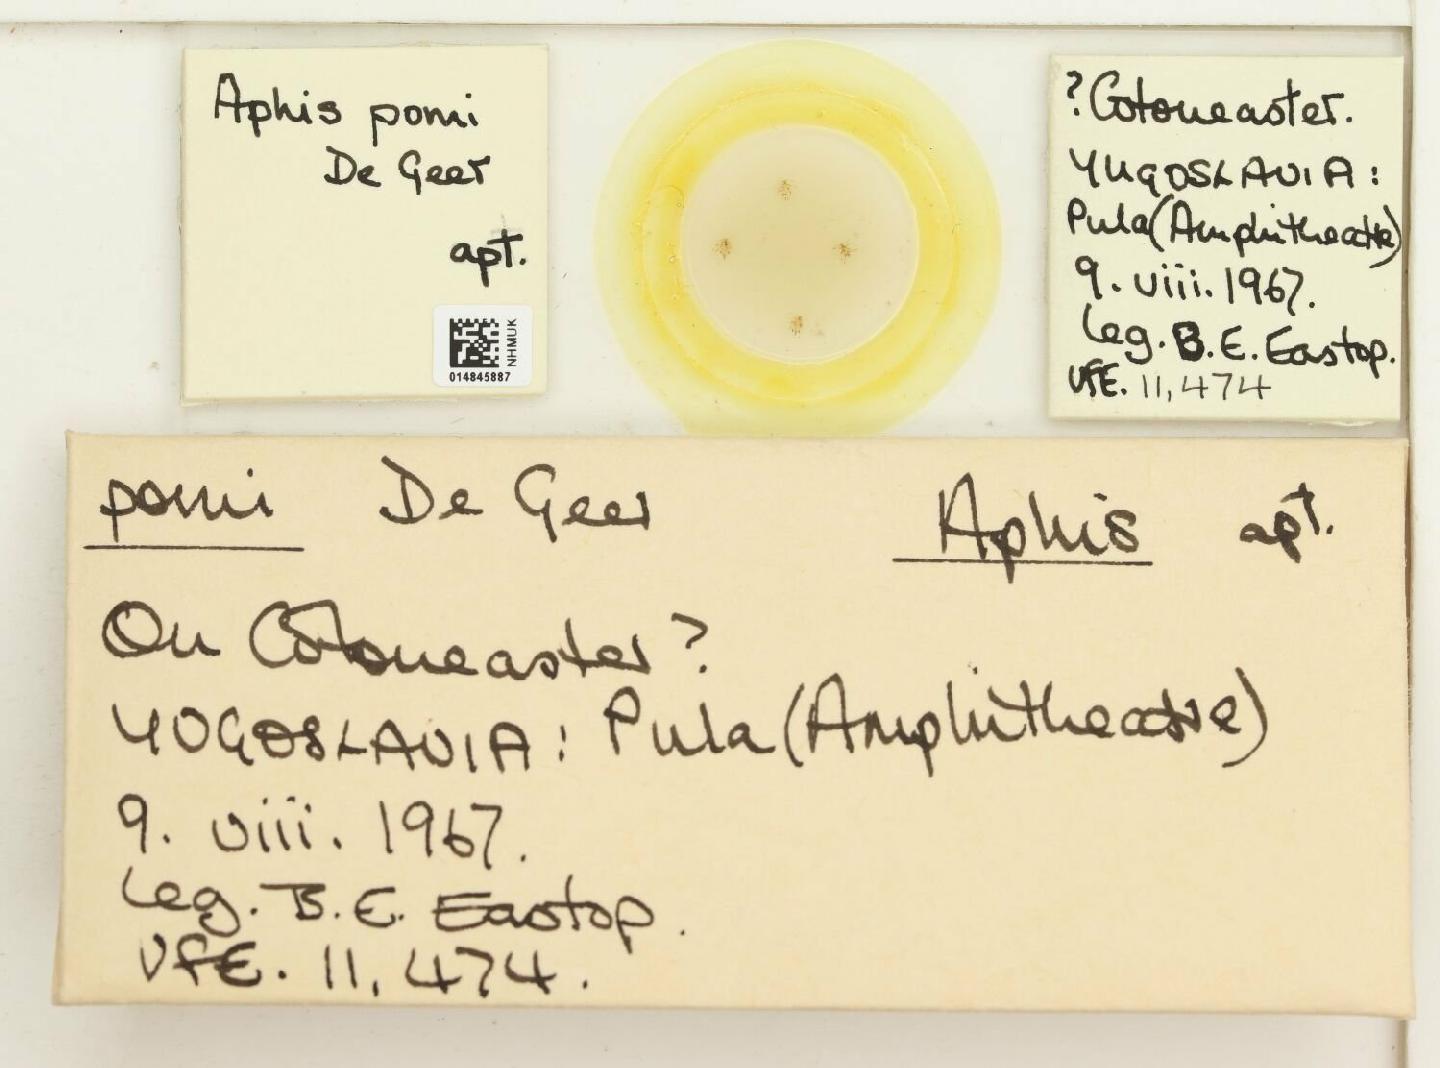 Aphis pomi
De Geer
apt.
NHMUK
014845887
?Cotoneaster.
YUGOSLAVIA:
Pula (Amphitheatre)
9. viii. 1967.
leg. B. E. Eastop.
VFE. 11,474
pomi De Geer Aphis apt.
On Cotoneaster?
YUGOSLAVIA: Pula (Amphitheatre)
9. viii. 1967.
leg. B. E. Eastop.
VFE. 11,474.